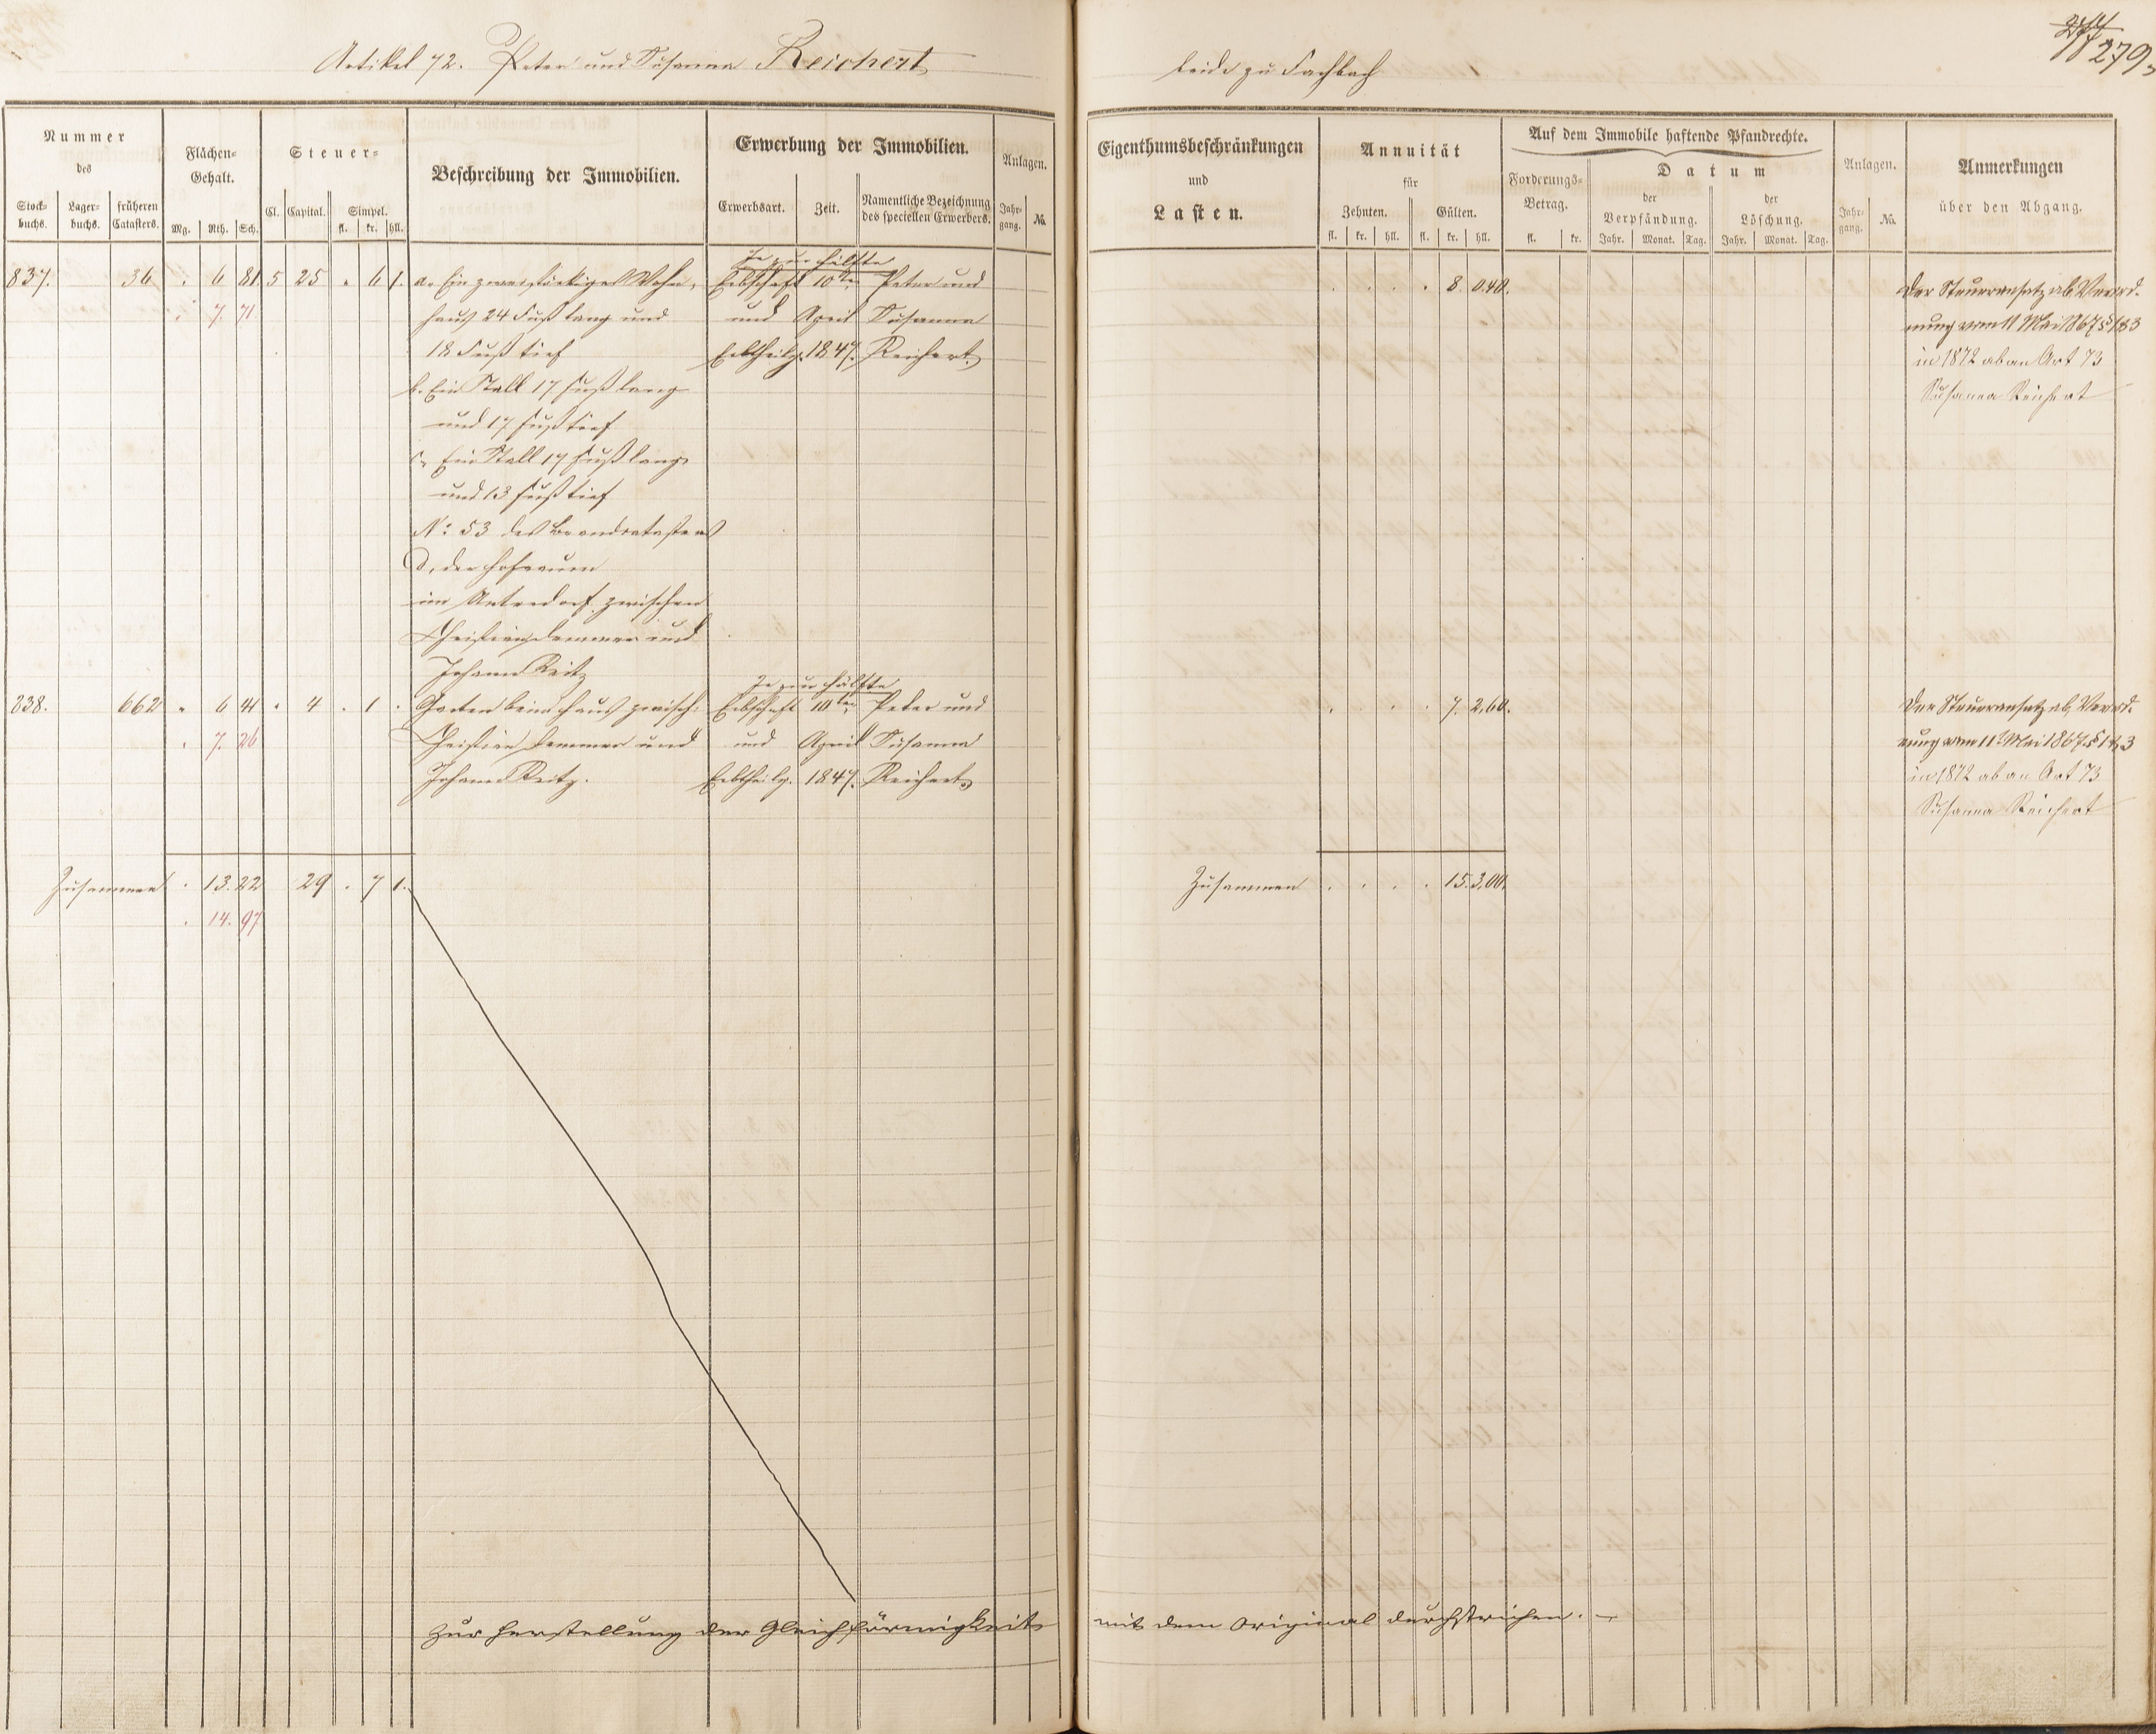 Artikel 72. Peter und Susanna Reichert
beide zu Fachbach
279
Nummer
des
Stock-
buchs.
Lager-
buchs.
früheren
Catasters.
Flächen-
Gehalt.
Mg. Rth. Sch.
Steuer-
Cl. Capital. Simpel.
fl. kr. hll.
Beschreibung der Immobilien.
Erwerbung der Immobilien.
Erwerbsart. Zeit. Namentliche Bezeichnung
des speciellen Erwerbers.
Anlagen.
Jahr-
gang. No.
Eigenthumsbeschränkungen
und
Lasten.
Annuität
für
Zehnten. Gülten.
fl. kr. hll. fl. kr. hll.
Auf dem Immobile haftende Pfandrechte.
Forderungs-
Betrag.
fl. kr.
Datum
der
Verpfändung.
Jahr. Monat. Tag.
der
Löschung.
Jahr. Monat. Tag.
Anlagen.
Jahr-
gang. No.
Anmerkungen
über den Abgang.
Je zur Hälfte
837. 36 . 6 81 5 25 . 6 1. a. Ein zweistöckiges Wohn- Erbschaft 10ten Peter und
. 7. 71 haus 24 Fuß lang und und April Susanna
18 Fuß tief Erbtheilg. 1847. Reichert.
b. Ein Stall 17 Fuß lang
und 17 Fuß tief
c. Ein Stall 17 Fuß lang
und 13 Fuß tief
No. 53 des Brandcatasters
d. der Hofraum
im Unterdorf zwischen
Christian Lemmer und
Johann Reitz
. . . . 8. 0,40.
Der Steueransatz ab Verord-
nung vom 11 Mai 1867 § 1 & 3
in 1872 ab an Art 73
Susanna Reichert
Je zur Hälfte
838. 662 . 6 41 . 4 . 1 . Garten beim Haus zwisch: Erbschaft 10ten Peter und
. 7. 26 Christian Lemmer und und April Susanna
Johann Reitz. Erbtheilg. 1847. Reichert.
. . . . 7. 2,60.
Der Steueransatz ab Verord-
nung vom 11t Mai 1867 § 1 & 3
in 1872 ab an Art 73
Susanna Reichert
Zusammen . 13. 22 29 . 7 1.
. 14. 97
Zusammen . . . . 15. 3,00.
zur Herstellung der Gleichförmigkeit mit dem Original durchstrichen. —